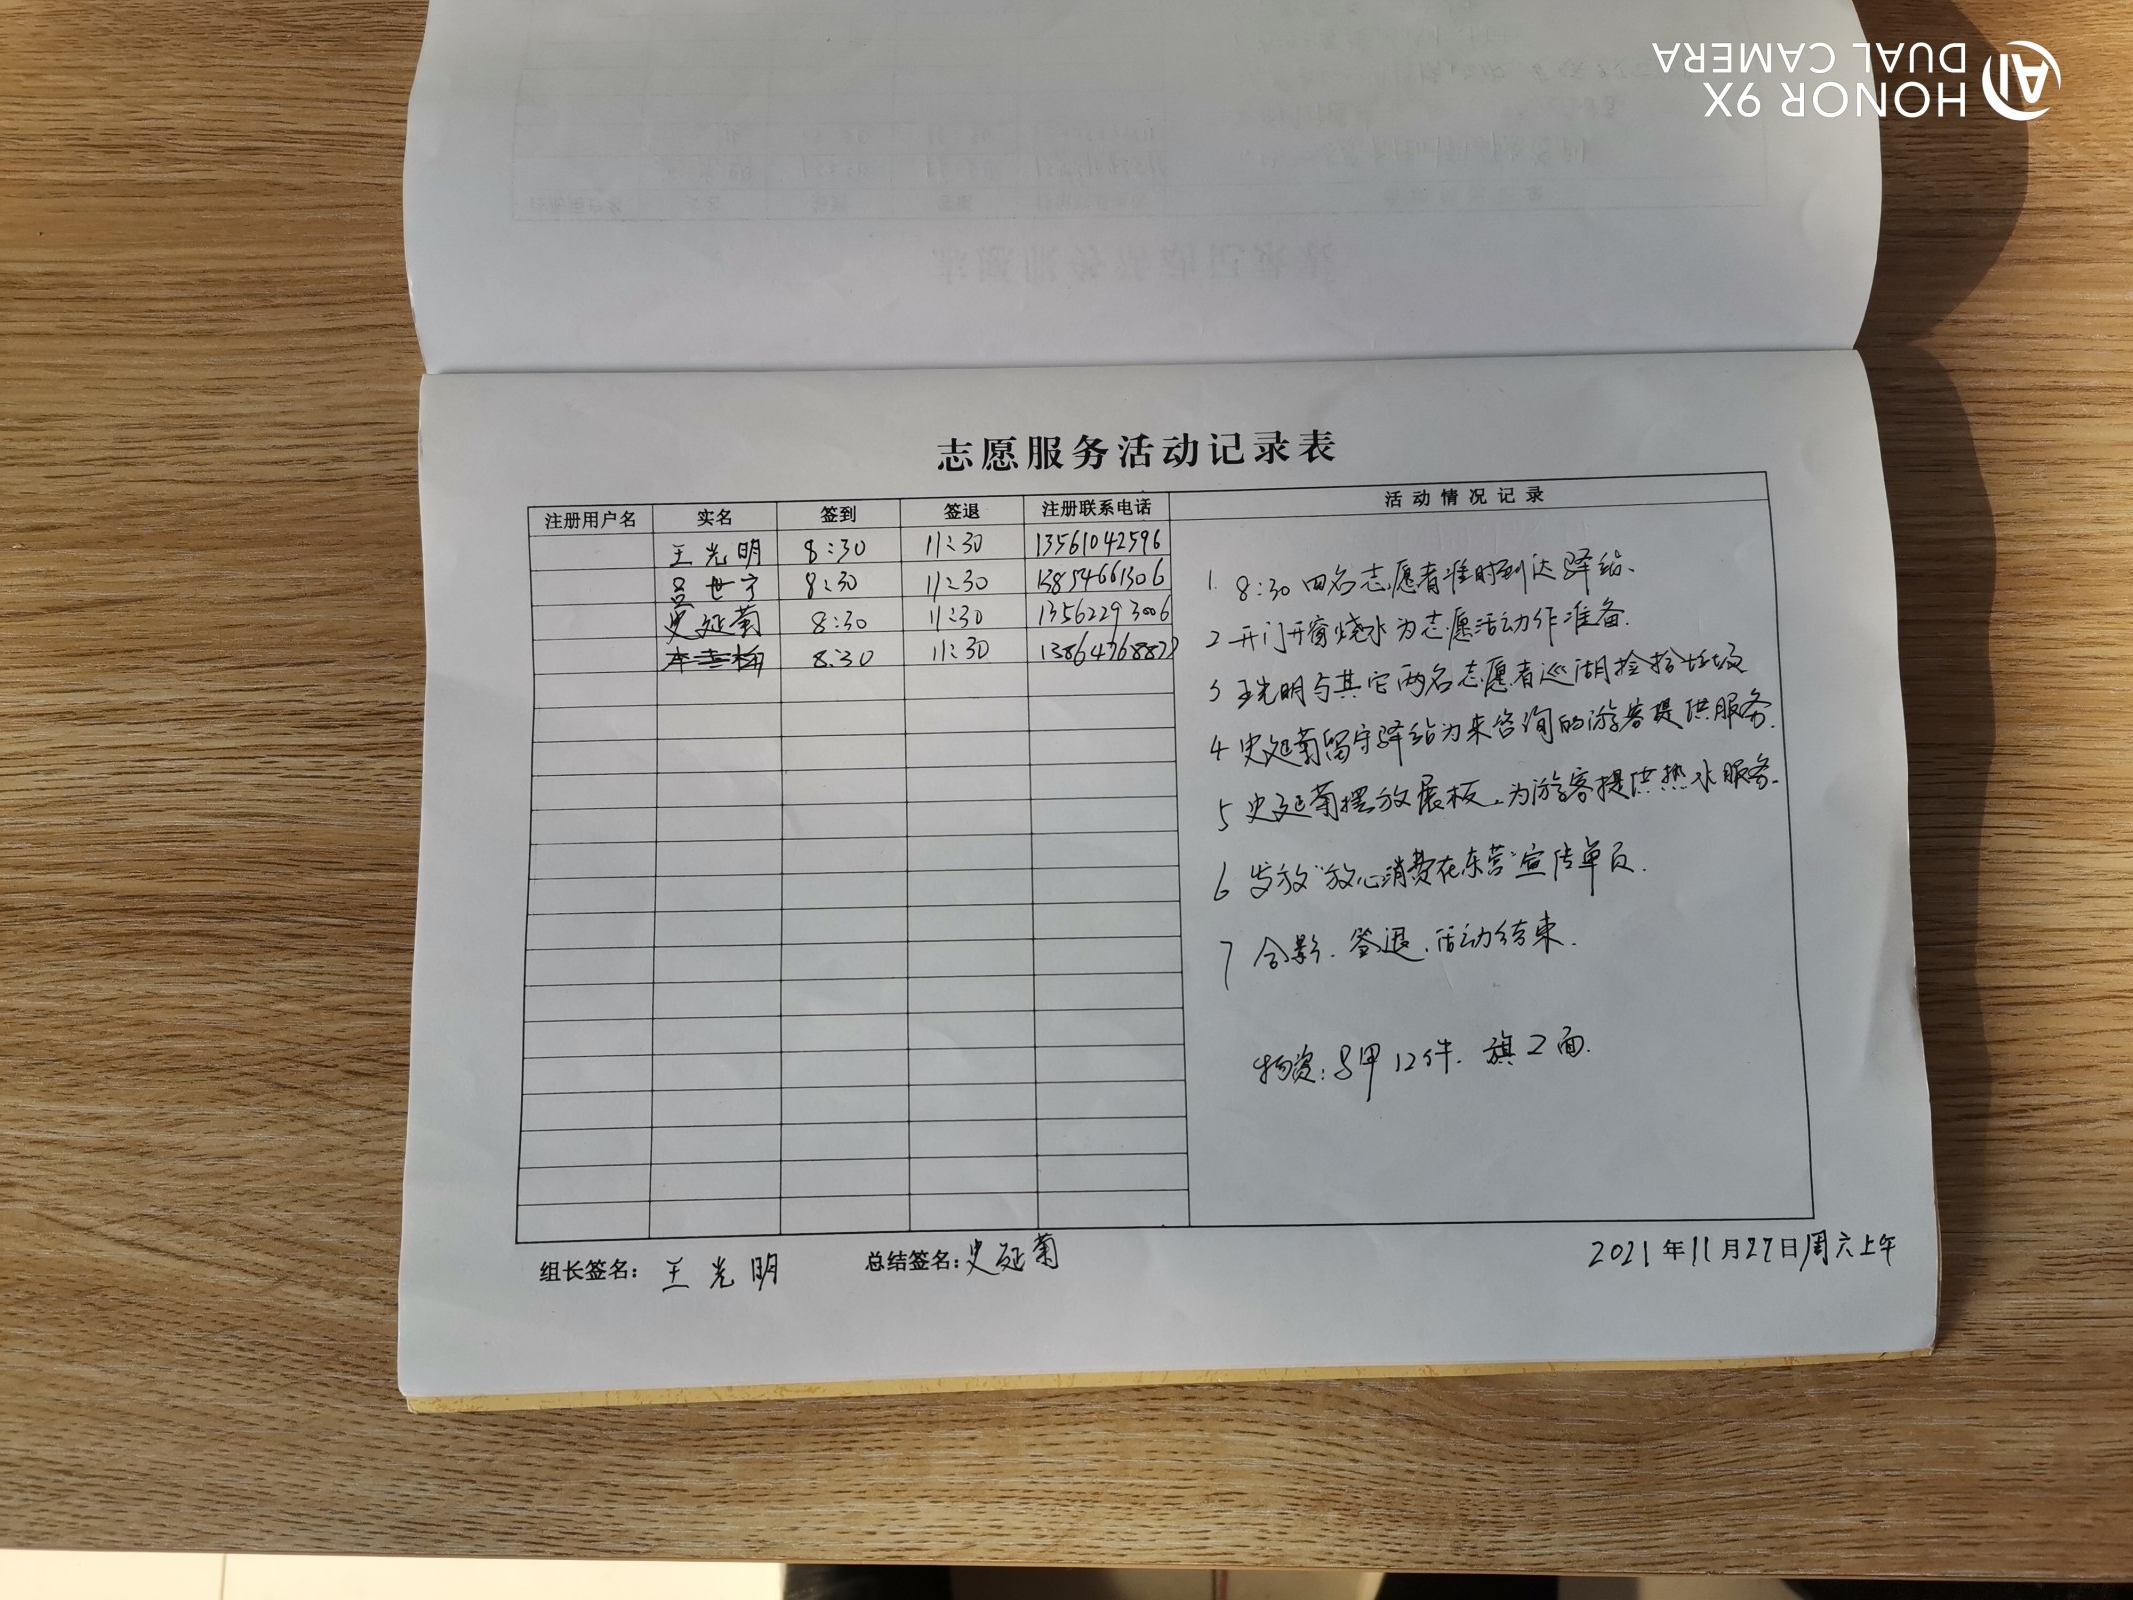 HONOR 9X
DUAL CAMERA
志愿服务活动记录表
注册用户名 实名 签到 签退 注册联系电话 活动情况记录
王光明 8:30 11:30 13561042596
吕世宁 8:30 11:30 13854661306
史延菊 8:30 11:30 13562293006
8:30 11:30
1. 8:30 四名志愿者准时到达驿站.
2 开门开窗烧水为志愿活动作准备.
3 王光明与其它两名志愿者巡湖捡拾垃圾
4 史延菊留守驿站为来咨询的游客提供服务.
5 史延菊摆放展板.为游客提供热水服务.
6 发放"放心消费在东营"宣传单页.
7 合影.签退.活动结束.
物资:马甲12件.旗2面.
组长签名: 王光明 总结签名: 史延菊 2021年11月27日周六上午